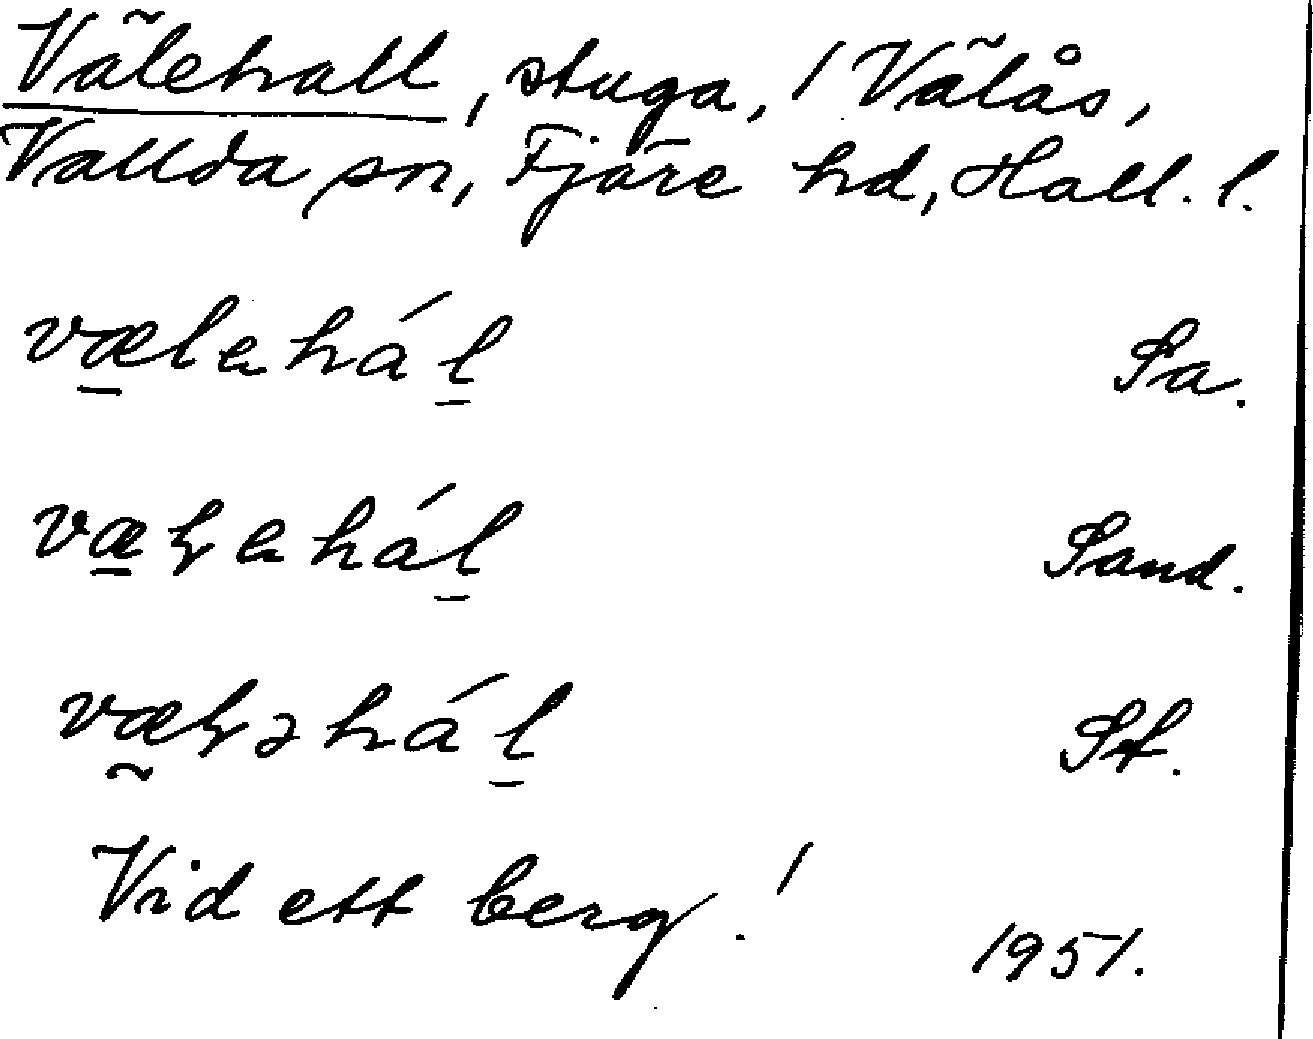 Välehall, stuga, / Välås,
Vallda sn, Fjäre hd, Hall. l.
væ̱lahál̠ Sa.
væ̱ɫahál̠ Sand.
væ̰ɫəhál̠ St.
Vid ett berg. /
1951.